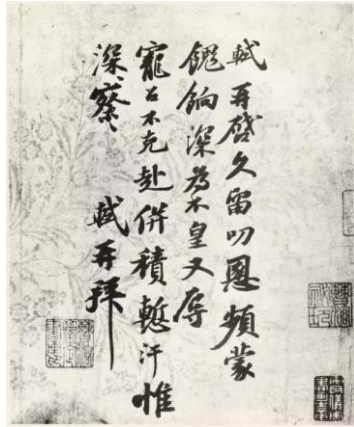 軾再啓久留叨恩頻蒙
餽餉深為不皇又辱
寵召不克赴併積慙汗惟
深〻察〻 軾再拜